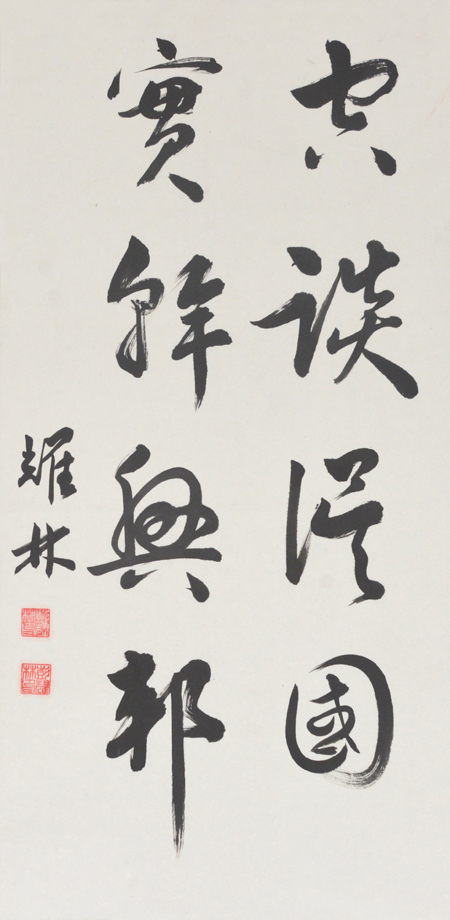 空談誤國
實幹興邦
耀林